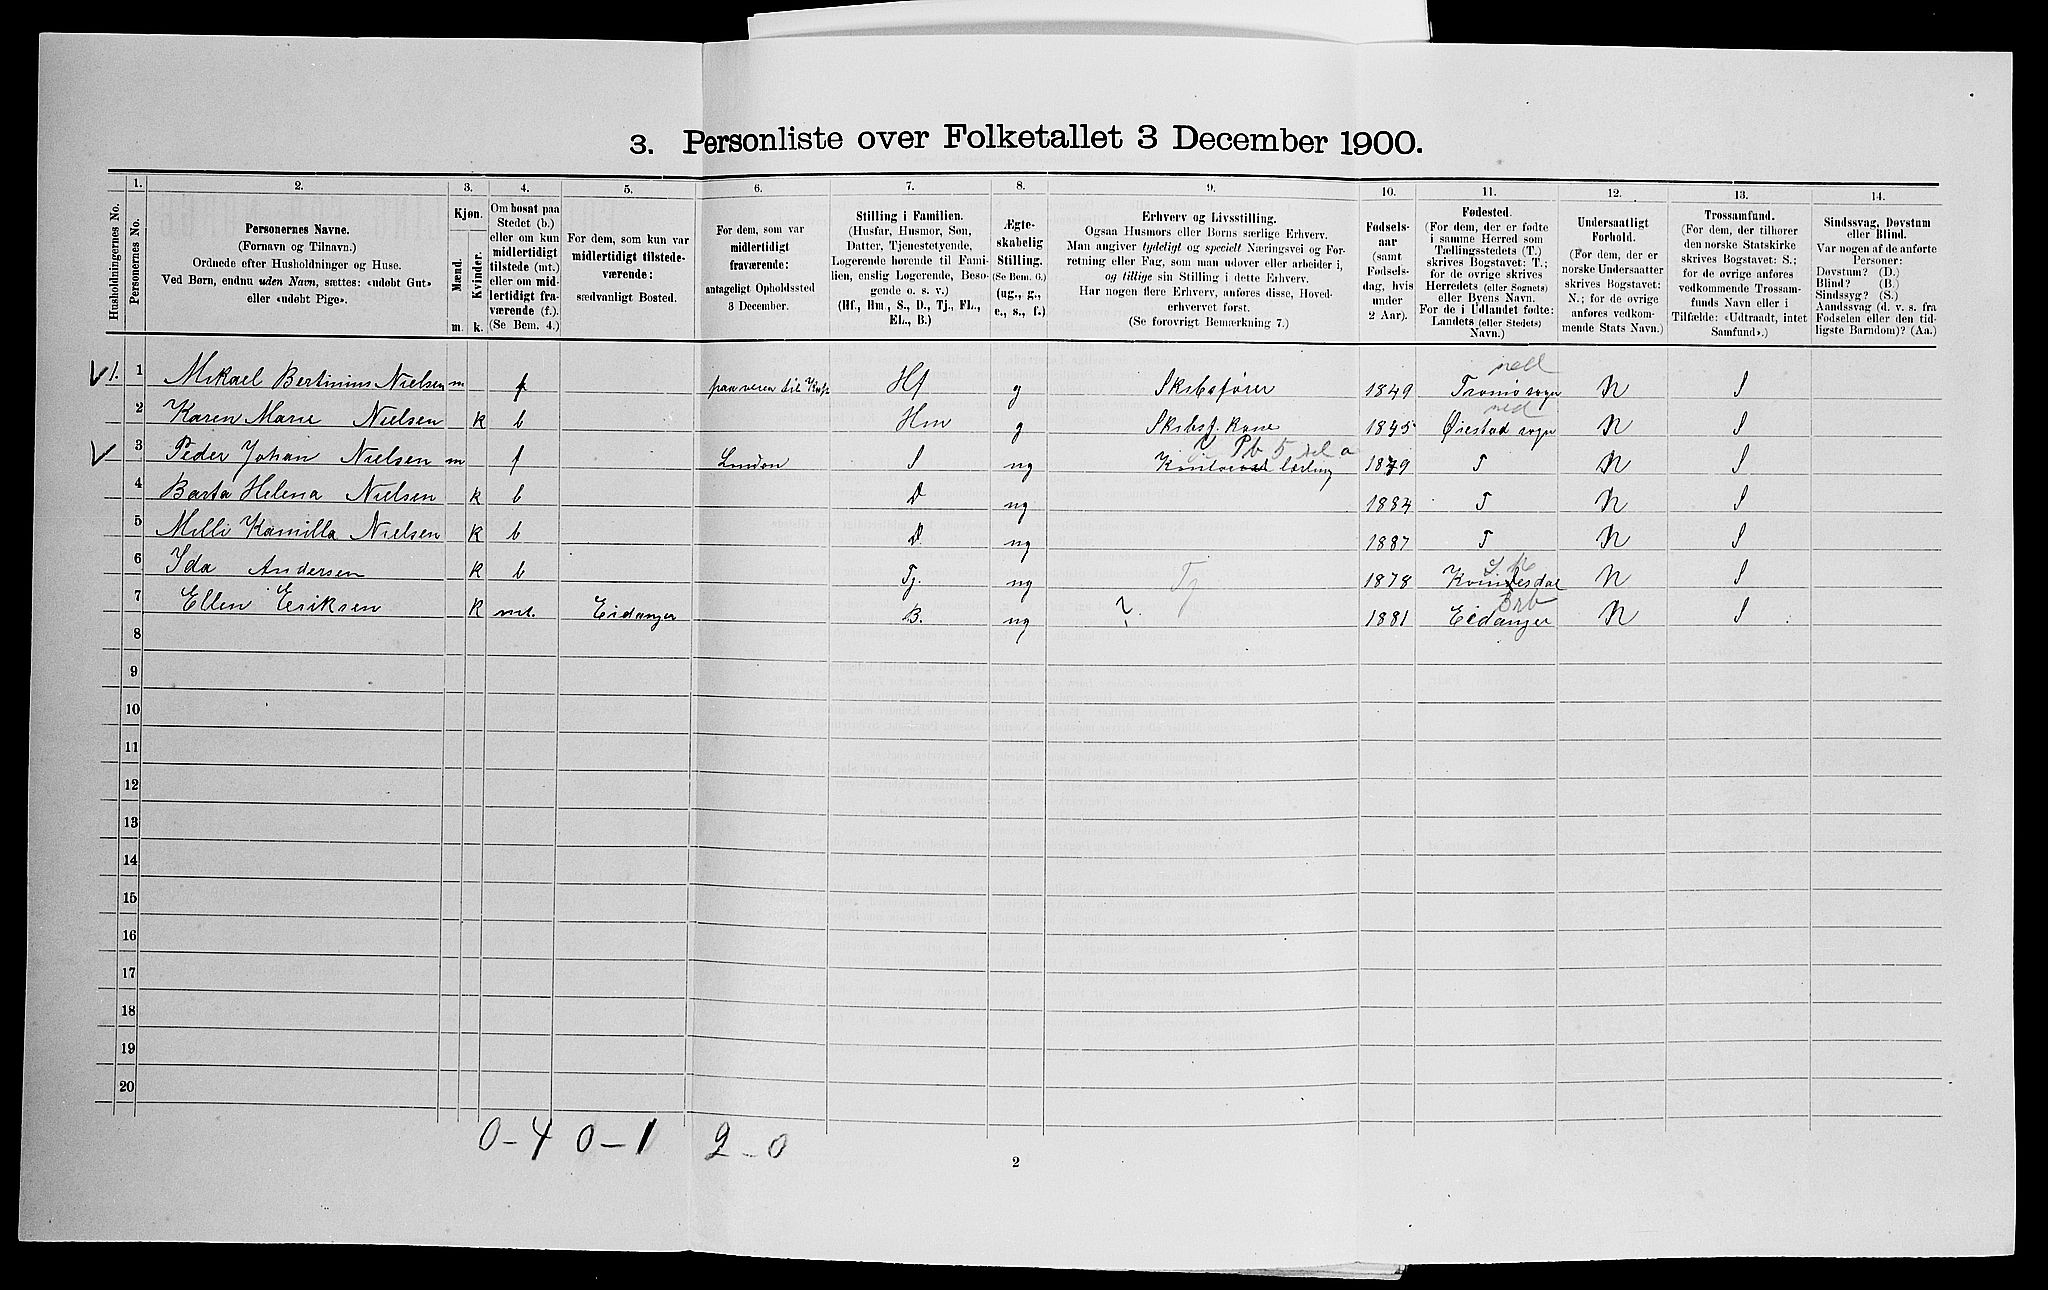 3. Personliste over Folketallet 3 December 1900.
1. 2. 3. 4. 5. 6. 7. 8. 9. 10. 11. 12. 13. 14.
Husholdningernes No.
Personernes No.
Personernes Navne.
(Fornavn og Tilnavn.)
Ordnede efter Husholdninger og Huse.
Ved Børn, endnu uden Navn, sættes: «udøbt Gut»
eller «udøbt Pige».
Kjøn.
Mænd.
Kvinder.
m. k.
Om bosat paa
Stedet (b.)
eller om kun
midlertidigt
tilstede (mt.)
eller om mid-
lertidigt fra-
værende (f.).
(Se Bem. 4.)
For dem, som kun var
midlertidigt tilstede-
værende:
sædvanligt Bosted.
For dem, som var
midlertidigt
fraværende:
antageligt Opholdssted
3 December.
Stilling i Familien.
(Husfar, Husmor, Søn,
Datter, Tjenestetyende,
Logerende hørende til Fami-
lien, enslig Logerende, Besø-
gende o. s. v.)
(Hf., Hm., S., D., Tj., FL.,
EL., B.)
Ægte-
skabelig
Stilling.
(Se Bem. 6.)
(ug., g.,
e., s., f.)
Erhverv og Livsstilling.
Ogsaa Husmors eller Børns særlige Erhverv.
Man angiver tydeligt og specielt Næringsvei og For-
retning eller Fag, som man udøver eller arbeider i,
og tillige sin Stilling i dette Erhverv.
Har nogen flere Erhverv, anføres disse, Hoved-
erhvervet først.
(Se forøvrigt Bemærkning 7.)
Fødsels-
aar
(samt
Fødsels-
dag, hvis
under
2 Aar).
Fødested.
(For dem, der er fødte
i samme Herred som
Tællingsstedets (T.)
skrives Bogstavet: T.;
for de øvrige skrives
Herredets (eller Sognets)
eller Byens Navn.
For de i Udlandet fødte:
Landets (eller Stedets)
Navn.)
Undersaatligt
Forhold.
(For dem, der er
norske Undersaatter
skrives Bogstavet:
N.; for de øvrige
anføres vedkom-
mende Stats Navn.)
Trossamfund.
(For dem, der tilhører
den norske Statskirke
skrives Bogstavet: S.;
for de øvrige anføres
vedkommende Trossam-
funds Navn eller i
Tilfælde: «Udtraadt, intet
Samfund».)
Sindssvag, Døvstum
eller Blind.
Var nogen af de anførte
Personer:
Døvstum? (D.)
Blind? (B.)
Sindssyg? (S.)
Aandssvag (d. v. s. fra
Fødselen eller den tid-
ligste Barndom)? (Aa.)
ned
V 1. 1 Mikael Bertinius Nielsen m f paa veien til Hf g Skibsfører 1849 Tromø sogn N S
ned
2 Karen Marie Nielsen k b Hm g Skibsf. kone 1845 Øiestad sogn N S
Pb 5 del a
V 3 Peder Johan Nielsen m f London S ug lærling 1879 T N S
4 Barta Helena Nielsen k b D ug 1884 T N S
5 Milli Kamilla Nielsen k b D. ug 1887 T N S
6 Ida Andersen k b Tj. ug Tj 1878 Kvinesdal N S
7 Ellen Eriksen k mt. Eidanger B. ug ? 1881 Eidanger N S
8
9
10
11
12
13
14
15
16
17
18
19
20
0-4 0-1 2-0
2